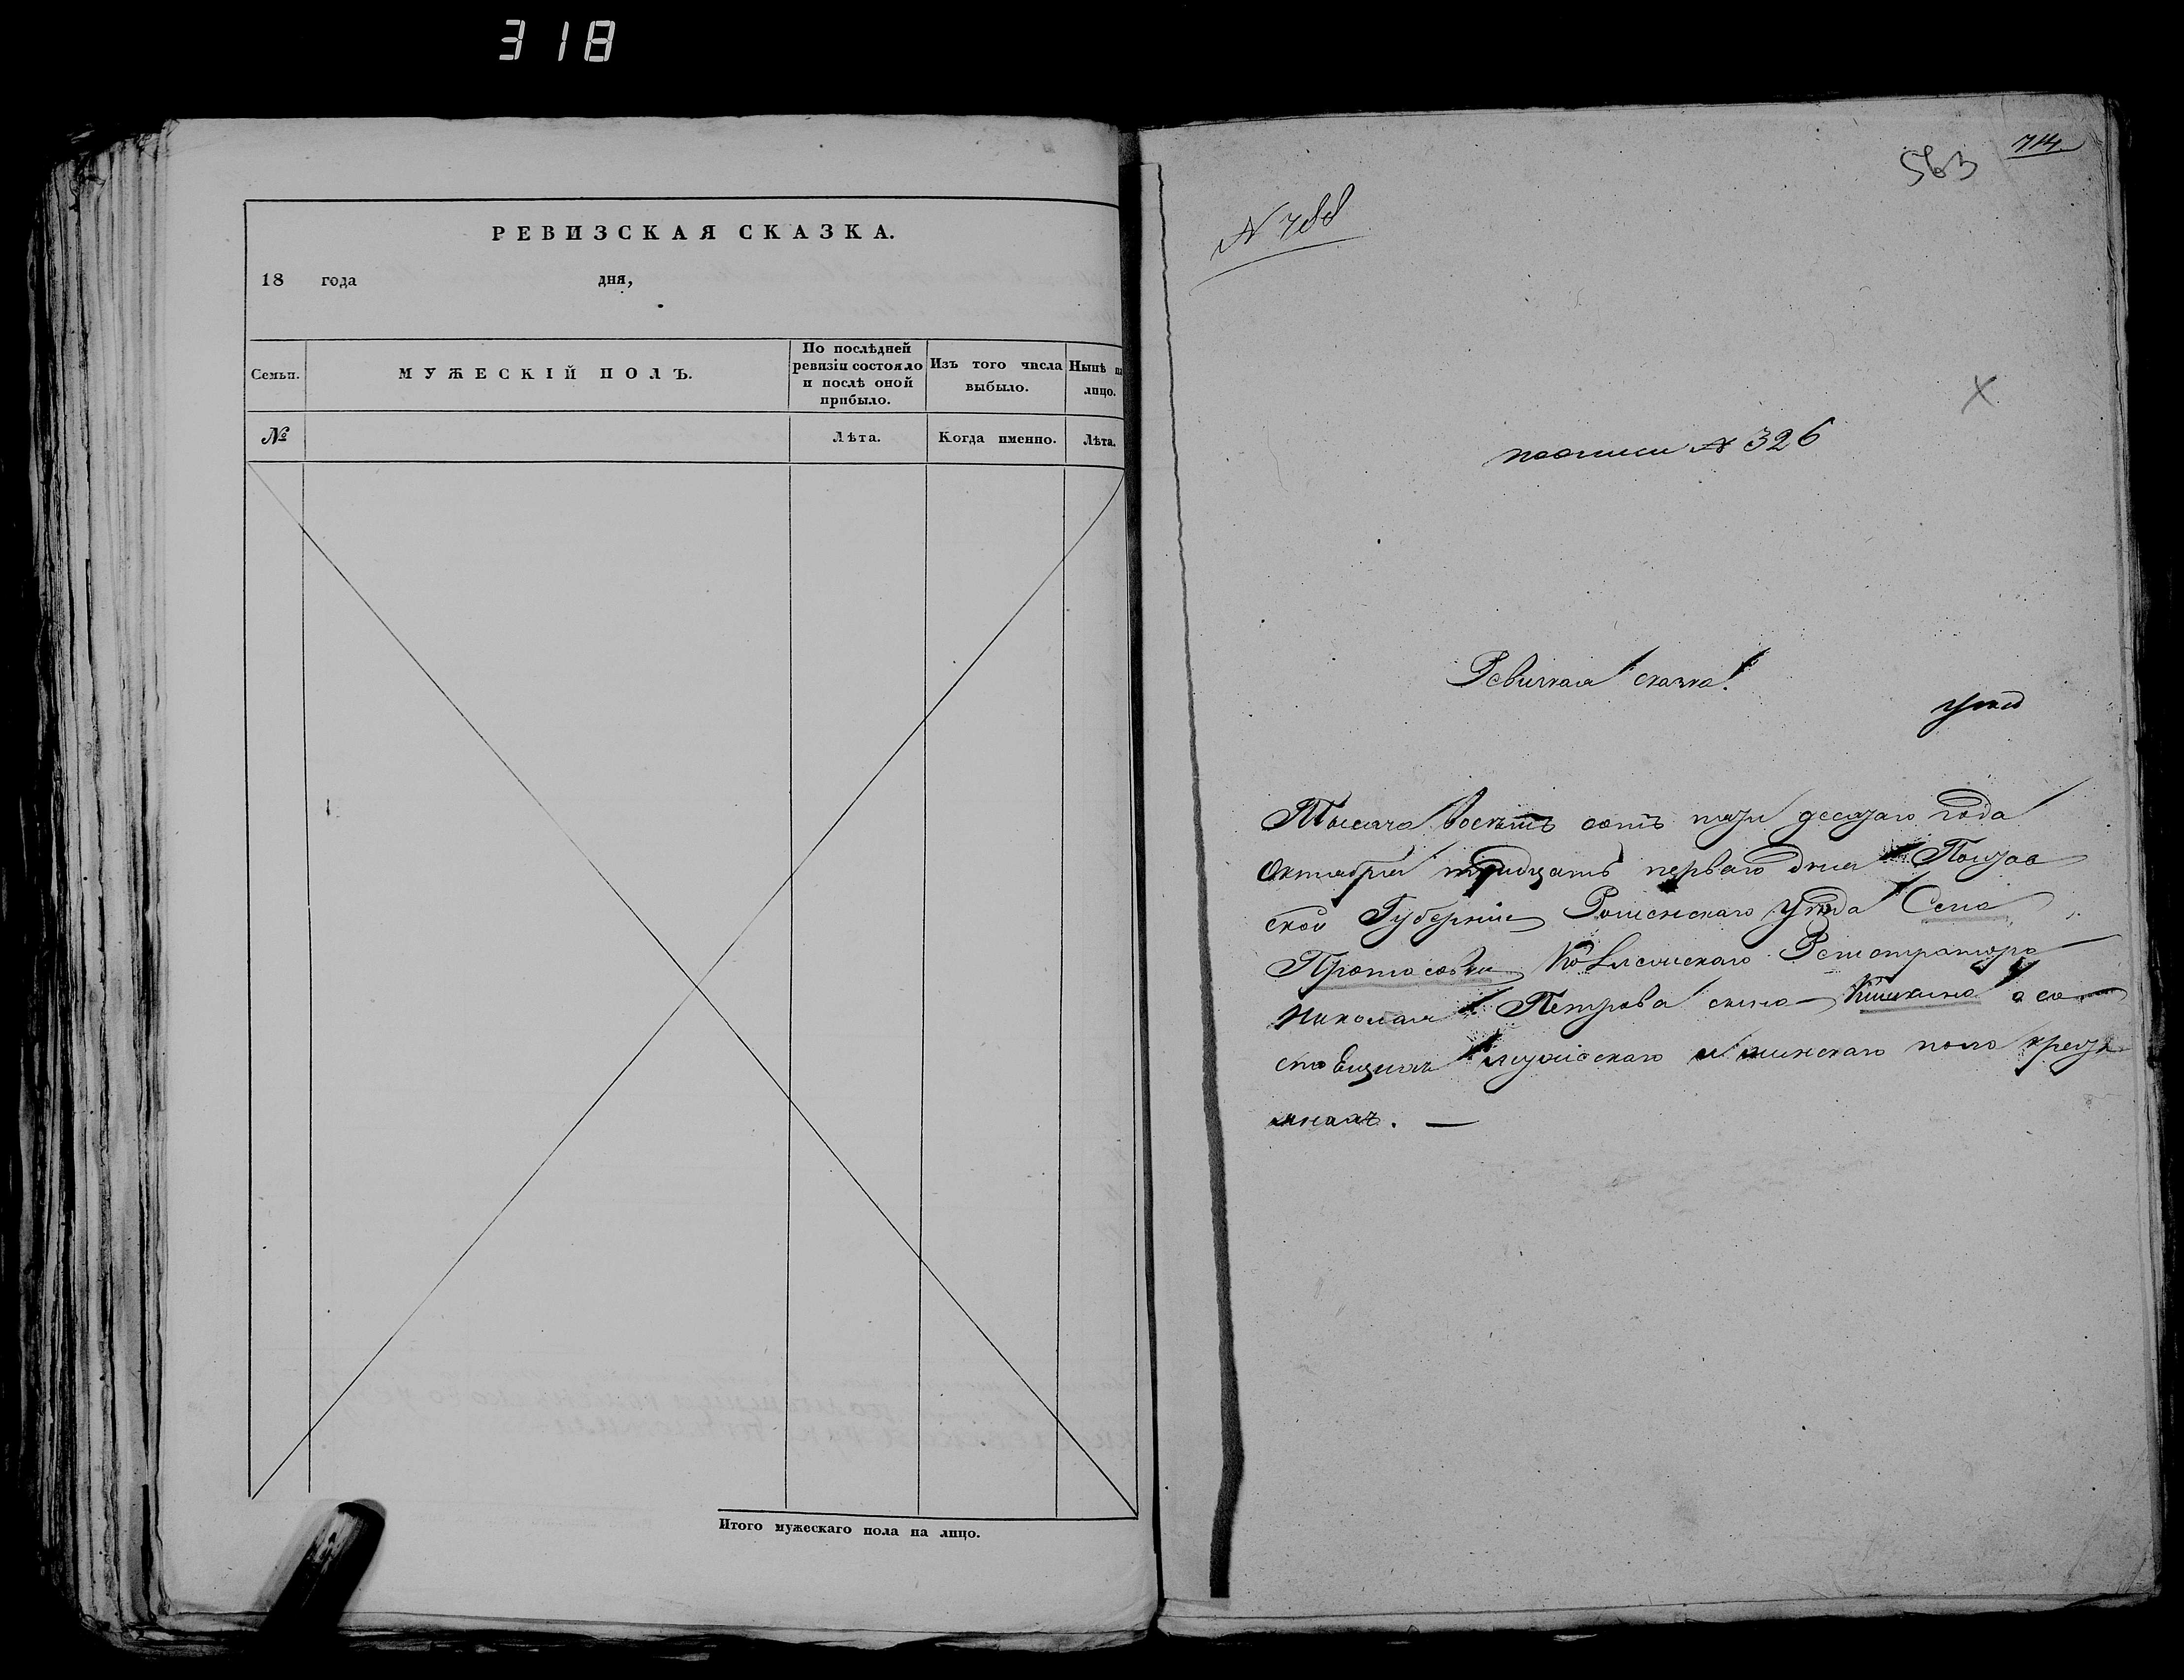 318
РЕВИЗСКАЯ СКАЗКА.
18 года дня,
Семьи.
МУЖЕСКІЙ ПОЛЪ.
По послѣдней ревизіи состояло и послѣ оной прибыло.
Изъ того числа выбыло.
Нынѣ на лицо.
№
Лѣта.
Когда именно.
Лѣта.
Итого мужескаго пола на лицо.
714
563
N 788
по описи N 326
Ревизкая сказка.
Тысяча восемъ сотъ пяти десятаго года
Октября тридцать перваго дня Полтав
ской Губерніи Роменскаго уѣзда Села
Протасовки Коллежскаго Регистратора
Николая Петрова сына Кишкина о со
стоящихъ мужескаго и женскаго пола крестья
нахъ. —